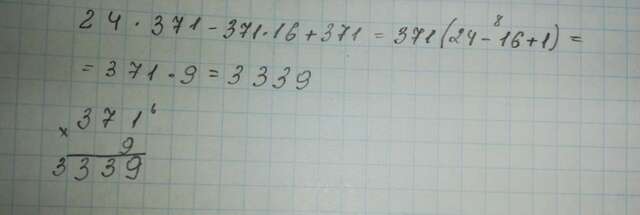 24 · 371 - 371 · 16 + 371 = 371 (24 - 16 + 1) =
8
= 371 · 9 = 3339
371 6
× 9
3339